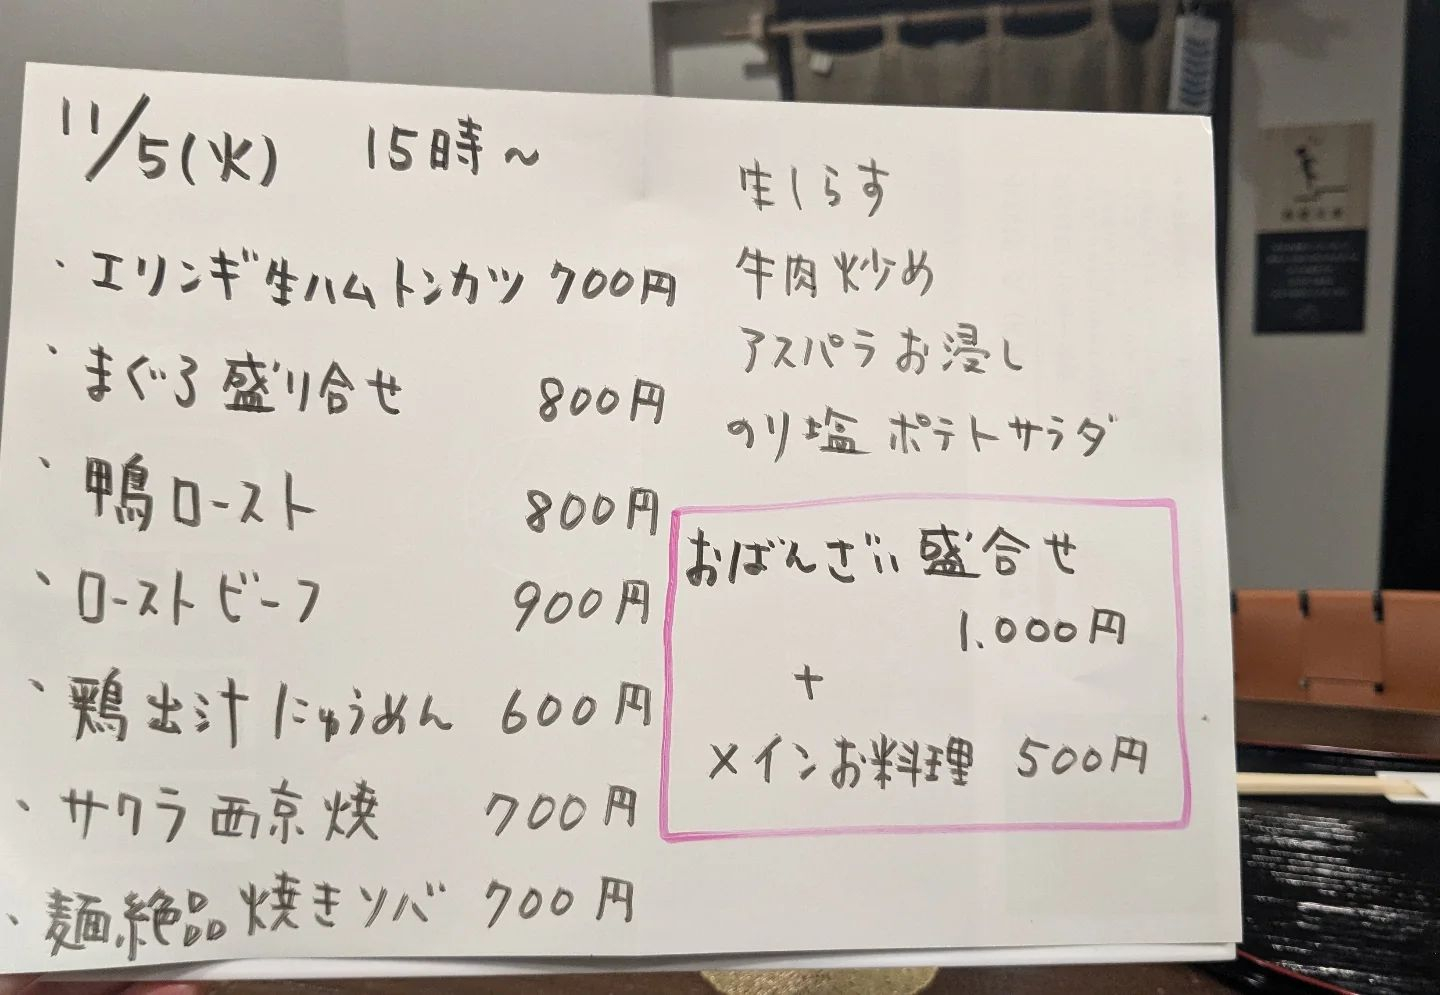 11/5(火) 15時～
・エリンギ生ハムトンカツ 700円
・まぐろ盛り合せ 800円
・鴨ロースト 800円
・ローストビーフ 900円
・鶏出汁にゅうめん 600円
・サワラ西京焼 700円
・麺絶品焼きソバ 700円
生しらす
牛肉炒め
アスパラお浸し
のり塩ポテトサラダ
おばんざい盛合せ
1.000円
+
メインお料理 500円